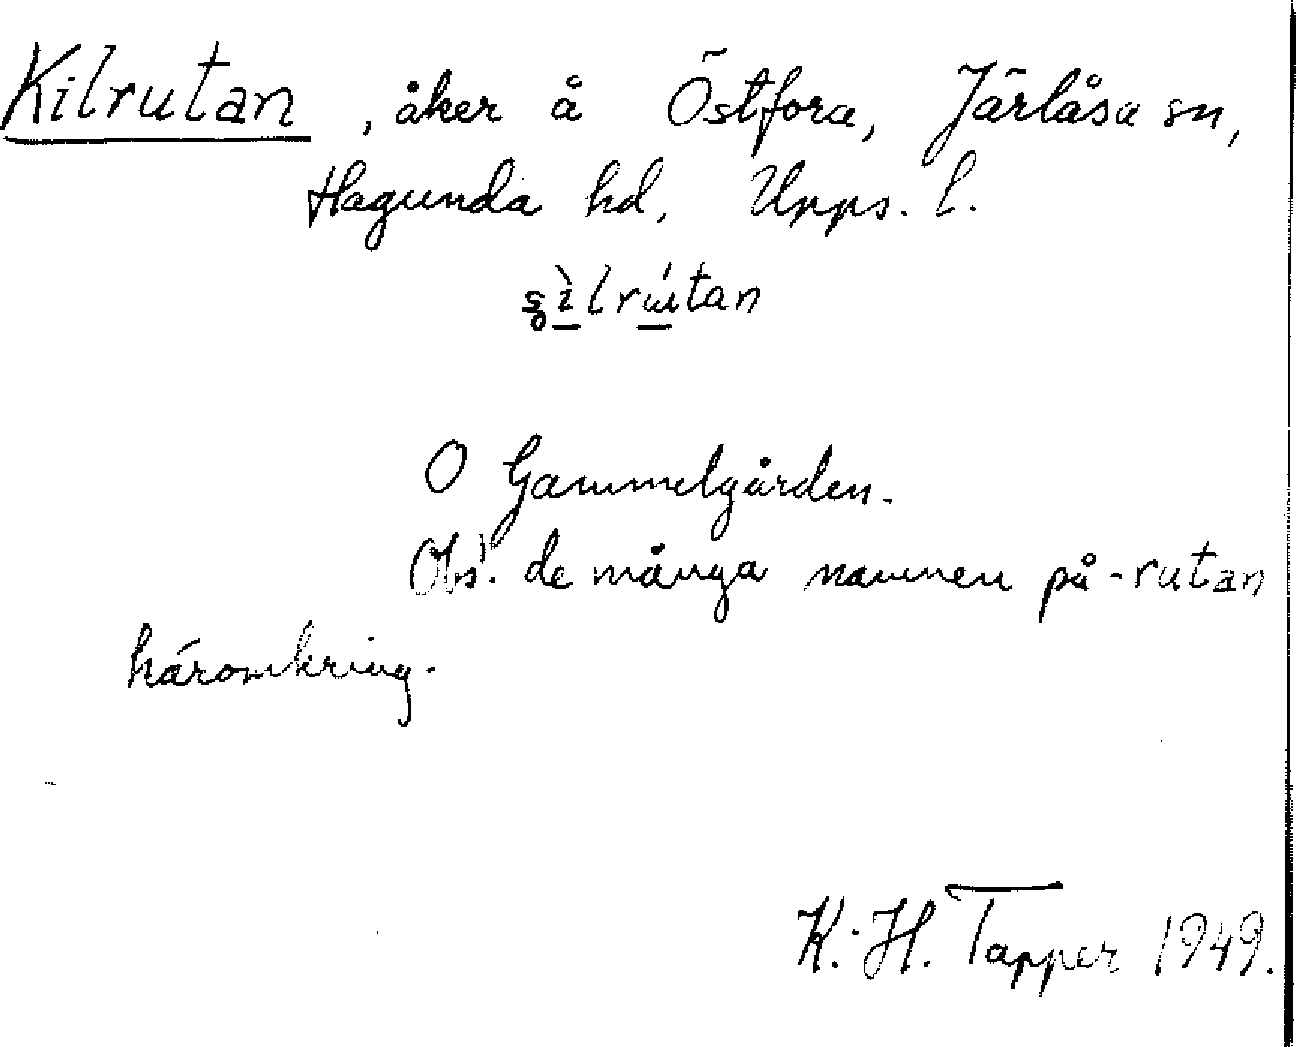 Kilrutan, åker å Östfora, Järlåsa sn,
Hagunda hd, Upps. l.
O Gammelgården.
Obs! de många namnen på -rutan
häromkring.
K.-H. Tapper 1949.